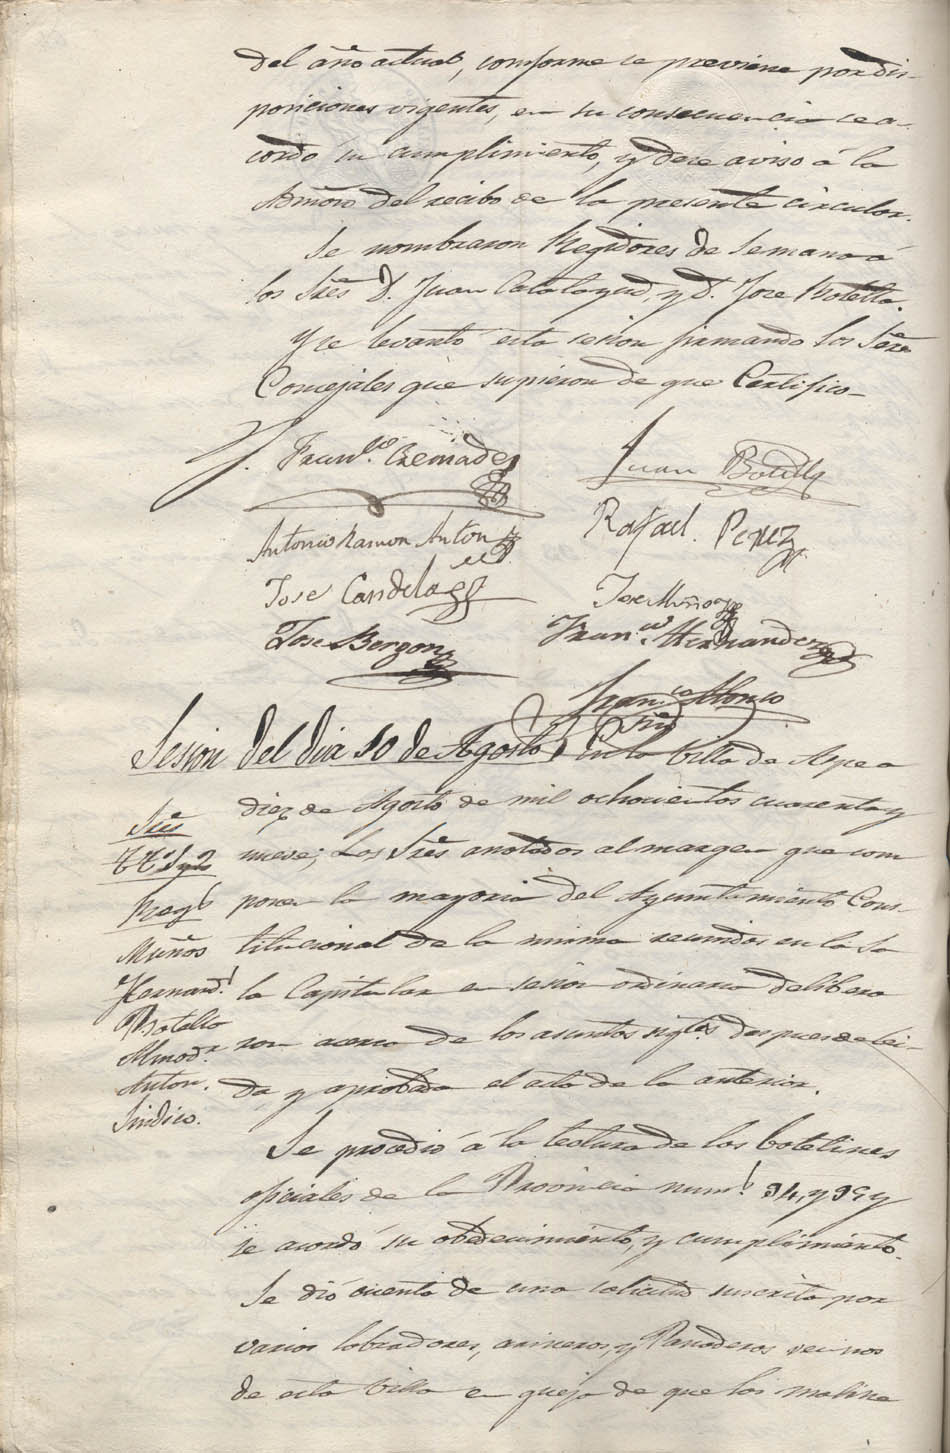 del año actual, conforme se previene por dis-
posiciones vigentes, en su consecuencia se a-
cordó su cumplimiento, y dese aviso á la
Admōn del recibo de la presente circular.
Se nombraron Regidores de Semana á
los Sres D. Juan Calatayud, y D. Jose Botella.
Y se levantó esta sesion firmando los Sres
Concejales que supieron de que Certifico-
Franco. Cremades
Juan Botella
Antonio Ramon Anton
Rafael Perez
Jose Candela
Jose Muños
Jose Bergon
Franco. Hernandez
Franco Alonso
Srio
Sesion del dia 10 de Agosto
En la Villa de Aspe a
diez de Agosto de mil ochocientos cuarenta y
nueve; Los Sres anotados al margen que com
ponen la mayoria del Ayuntamiento Cons-
titucional de la misma reunidos en la Sa
la Capitular en sesion ordinaria delibera
ron acerca de los asuntos sigtes. despues de lei-
da y aprobada el acta de la anterior.
Sres
Regs
Muños
Hernandz
Botella
Almodr
Anton.
Sindico.
Se procedió á la lectura de los boletines
oficiales de la Provincia nums. 94, y 95 y
se acordó su obedecimiento, y cumplimiento.
Se dió cuenta de una solicitud suscrita por
varios labradores, arineros, y Panaderos vecinos
de esta Villa en queja de que los moline